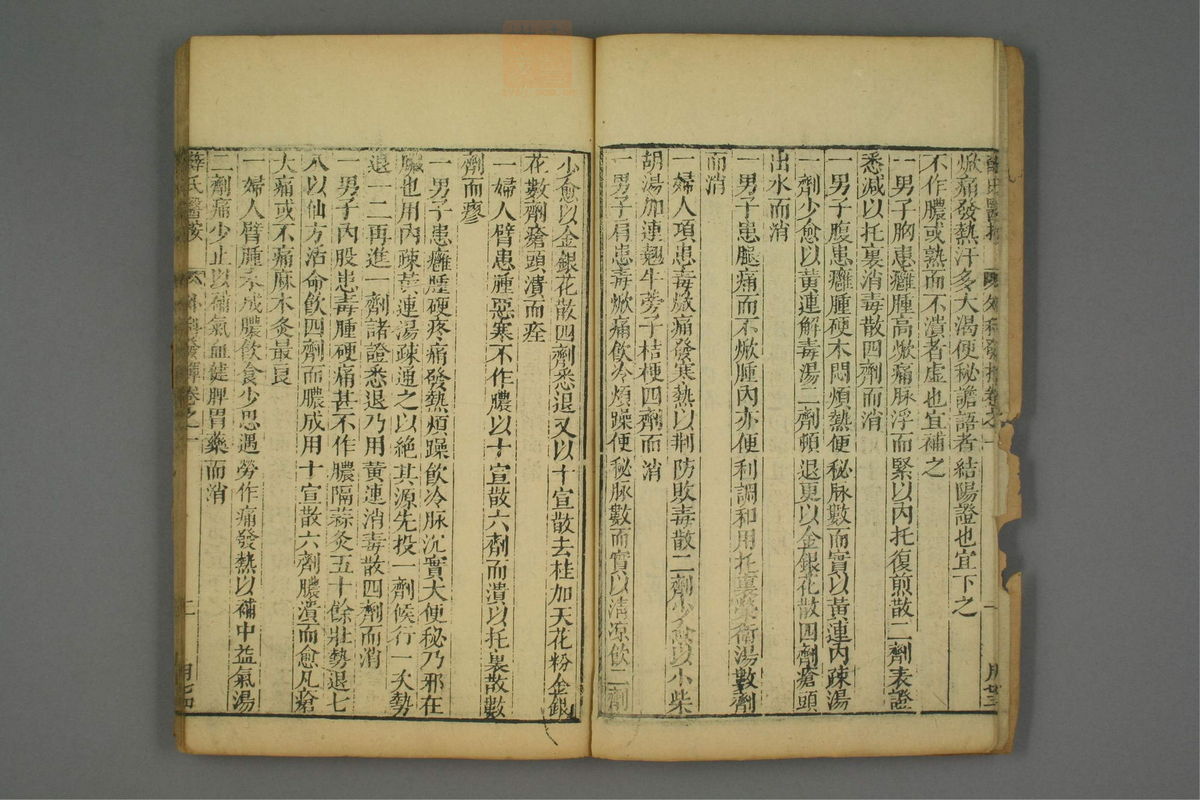 焮痛發熱汗多大渴便秘譫語者結陽證也宜下之
不作膿或熟而不潰者虛也宜補之
一男子胸患癰腫高焮痛脉浮而緊以內托復煎散二劑表證
悉減以托裏消毒散四劑而消
一男子腹患癰腫硬木悶煩熱便秘脉數而實以黃連內疎湯
一劑少愈以黃連解毒湯二劑頓退更以金銀花散四劑瘡頭
出水而消
一男子患腿痛而不焮腫內亦便利調和用托裏榮衛湯數劑
而消
一婦人項患毒焮痛發寒熱以荆防敗毒散二劑少愈以小柴
胡湯加連翹牛蒡子桔梗四劑而消
一男子肩患毒焮痛飲冷煩躁便秘脉數而實以清凉飲二劑
少愈以金銀花散四劑悉退又以十宣散去桂加天花粉金銀
花數劑瘡頭潰而痊
一婦人臂患腫惡寒不作膿以十宣散六劑而潰以托裏散數
劑而瘳
一男子患癰腫硬疼痛發熱煩躁飲冷脉沉實大便秘乃邪在
臟也用內疎黃連湯疎通之以絕其源先投一劑候行一次勢
退一二再進一劑諸證悉退乃用黃連消毒散四劑而消
一男子內股患毒腫硬痛甚不作膿隔蒜灸五十餘壯勢退七
八以仙方活命飲四劑而膿成用十宣散六劑膿潰而愈凡瘡
大痛或不痛麻木灸最良
一婦人臂腫未成膿飲食少思遇勞作痛發熱以補中益氣湯
二劑痛少止以補氣血健脾胃藥而消
薛氏醫按 外科發揮卷之一 二 月七四